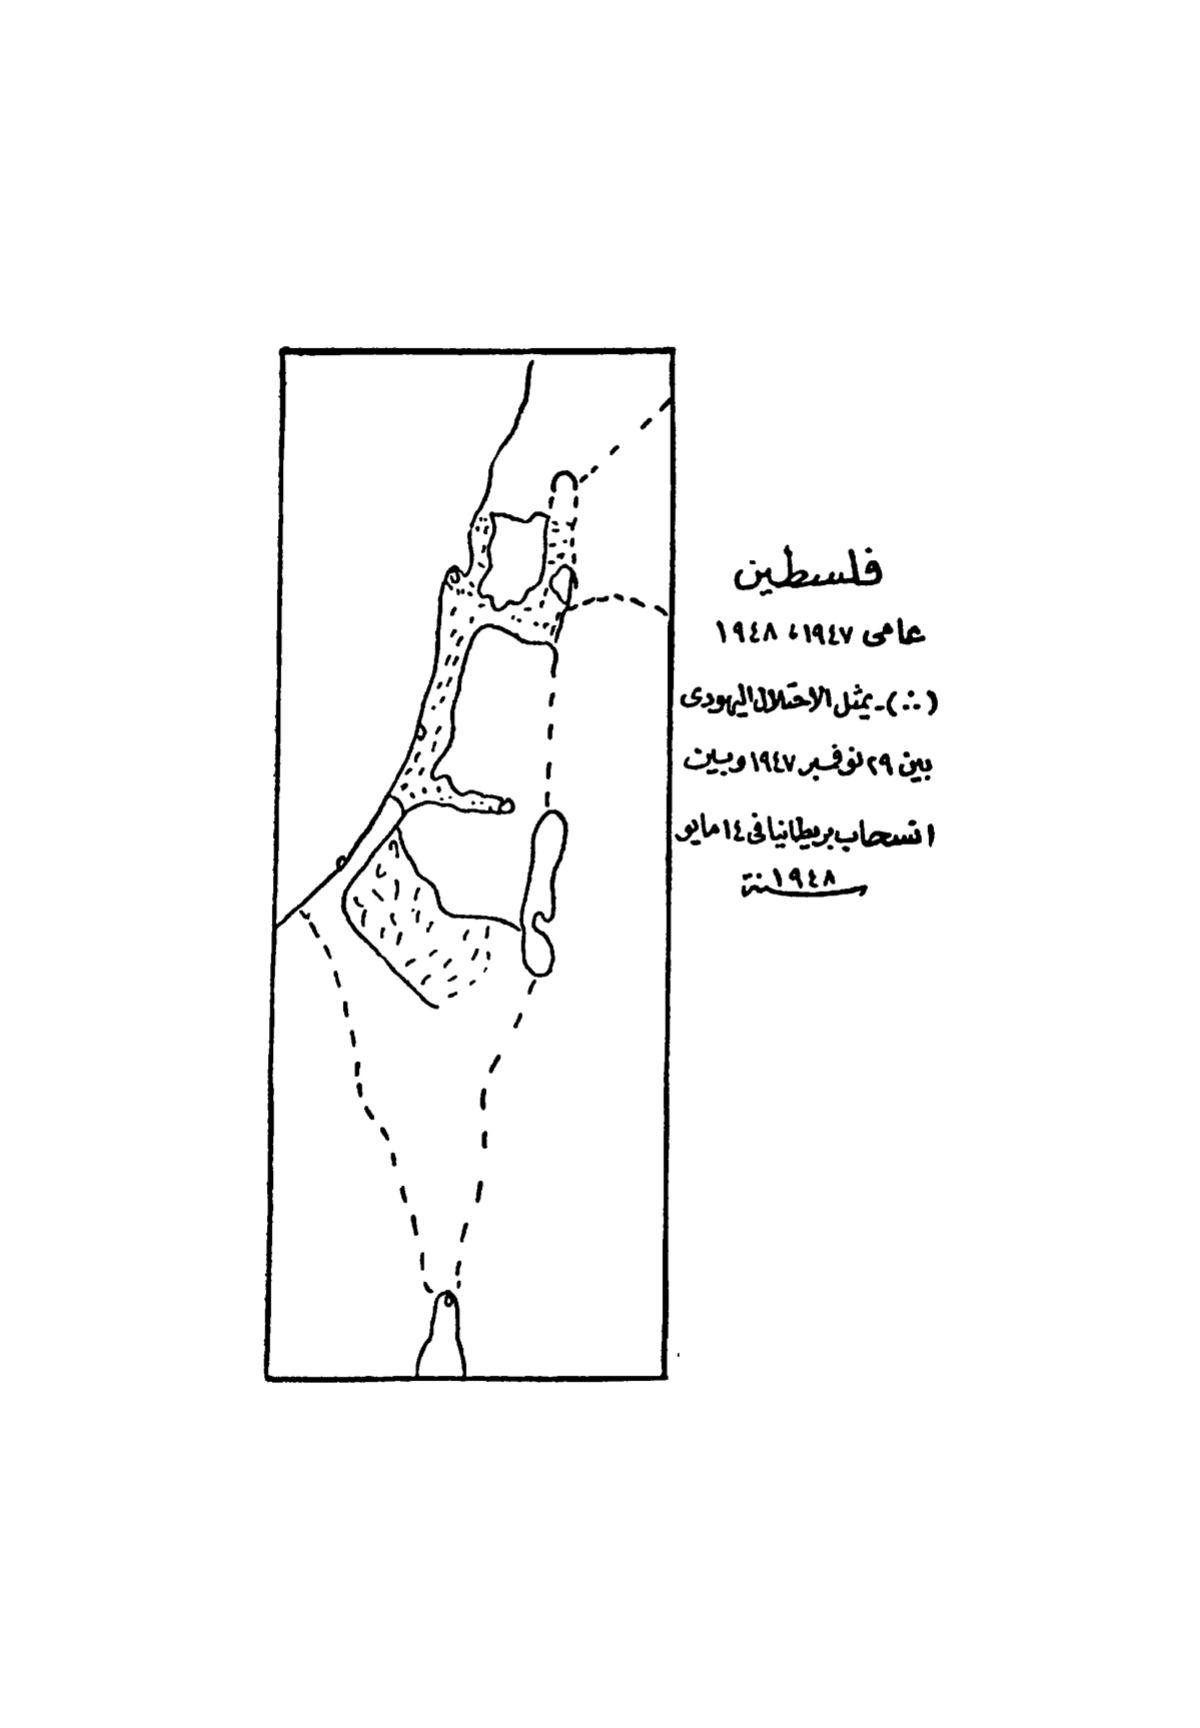 فلسطين
عامى ١٩٤٧، ١٩٤٨
(∴) ـ يمثل الاحتلال اليهودى
بين ٢٩ نوفمبر ١٩٤٧ وبين
انسحاب بريطانيا فى ١٤ مايو
سنة ١٩٤٨